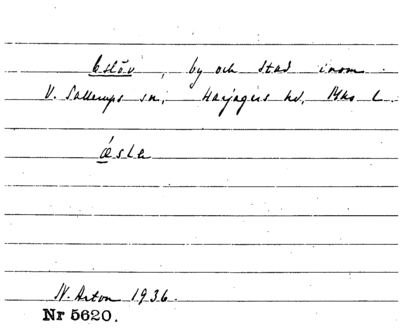 Eslöv, by och stad inom
V. Sallerups sn, Harjagers hd, Mhs l.
ǽsle
W. Arton 1936.
Nr 5620.